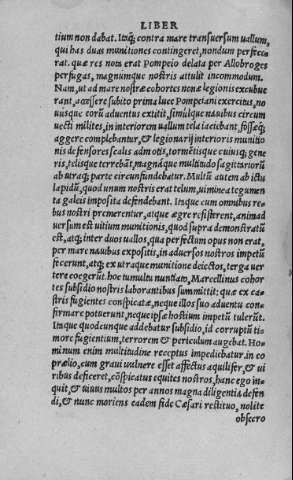 LIBER
tium non dabat. Itaq; contra mare transuersum uallum,
qui has duas munitiones contingeret, nondum perfecerat
rat. quæ res nota erat Pompeio delata per Allobroges
perfugas, magnumque nostris attulit incommodum.
Nam, ut ad mare nostræ cohortes nonæ legionis excubue
rant, accessere subito prima luce Pompeiani exercitus, no
uusque eorũ aduentus extitit, simulque nauibus circum
uecti milites, in interiorem uallum tela iaciebant, fossæq;
aggere complebantur, & legionarij interioris munitio
nis defensores scalis admotis, tormẽtisque cuiusq; gene
ris, telisque terrebãt, magnáque multitudo sagittariorũ
ab utraq; parte circunfundebatur. Multũ autem ab ictu
lapidũ, quod unum nostris erat telum, uiminea tegumen
ta galeis imposita defendebant. Itaque cum omnibus re
bus nostri premerentur, atque ægre resisterent, animad
uersum est uitium munitionis, quod supra demonstratũ
est, atq; inter duos uallos, qua perfectum opus non erat,
per mare nauibus expositis, in aduersos nostros impetũ
fecerunt, atq; ex utraque munitione deiectos, terga uer
tere coegerũt. hoc tumultu nuntiato, Marcellinus cohor
tes subsidio nostris laborantibus summittit: quæ ex ca
stris fugientes conspicatæ, neque illos suo aduentu con
firmare potuerunt, neque ipsæ hostium impetũ tulerũt.
Itaque quodcunque addebatur subsidio, id corruptũ ti
more fugientium, terrorem & periculum augebat. Ho
minum enim multitudine receptus impediebatur. in eo
prælio, cum graui uulnere esset affectus aquilifer, & ui
ribus deficeret, cõspicatus equites nostros, hanc ego in
quit, & uiuus multos per annos magna diligentia defen
di, & nunc moriens eadem fide Cæsari restituo, nolite
obsecro